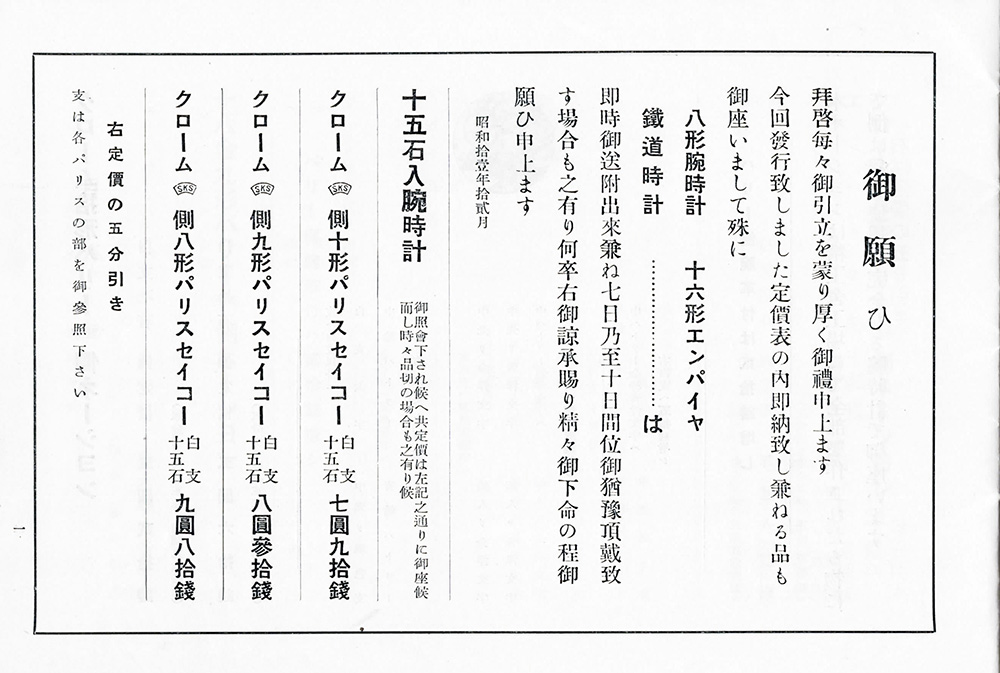 御願ひ
拜啓每々御引立を蒙り厚く御禮申上ます
今回發行致しました定價表の內即納致し兼ねる品も
御座いまして殊に
八形腕時計　十六形エンパイヤ
鐵道時計………………は
即時御送附出來兼ね七日乃至十日間位御猶豫頂戴致
す場合も之有り何卒右御諒承賜り精々御下命の程御
願ひ申上ます
昭和拾壹年拾貳月
十五石入腕時計
御照會下され候へ共定價は左記之通りに御座候
而し時々品切の場合も之有り候
クローム SKS 側十形パリスセイコー 白支十五石 七圓九拾錢
クローム SKS 側九形パリスセイコー 十五石 八圓參拾錢
クローム SKS 側八形パリスセイコー 白支十五石 九圓八拾錢
右定價の五分引き
支は各パリスの部を御參照下さい
一